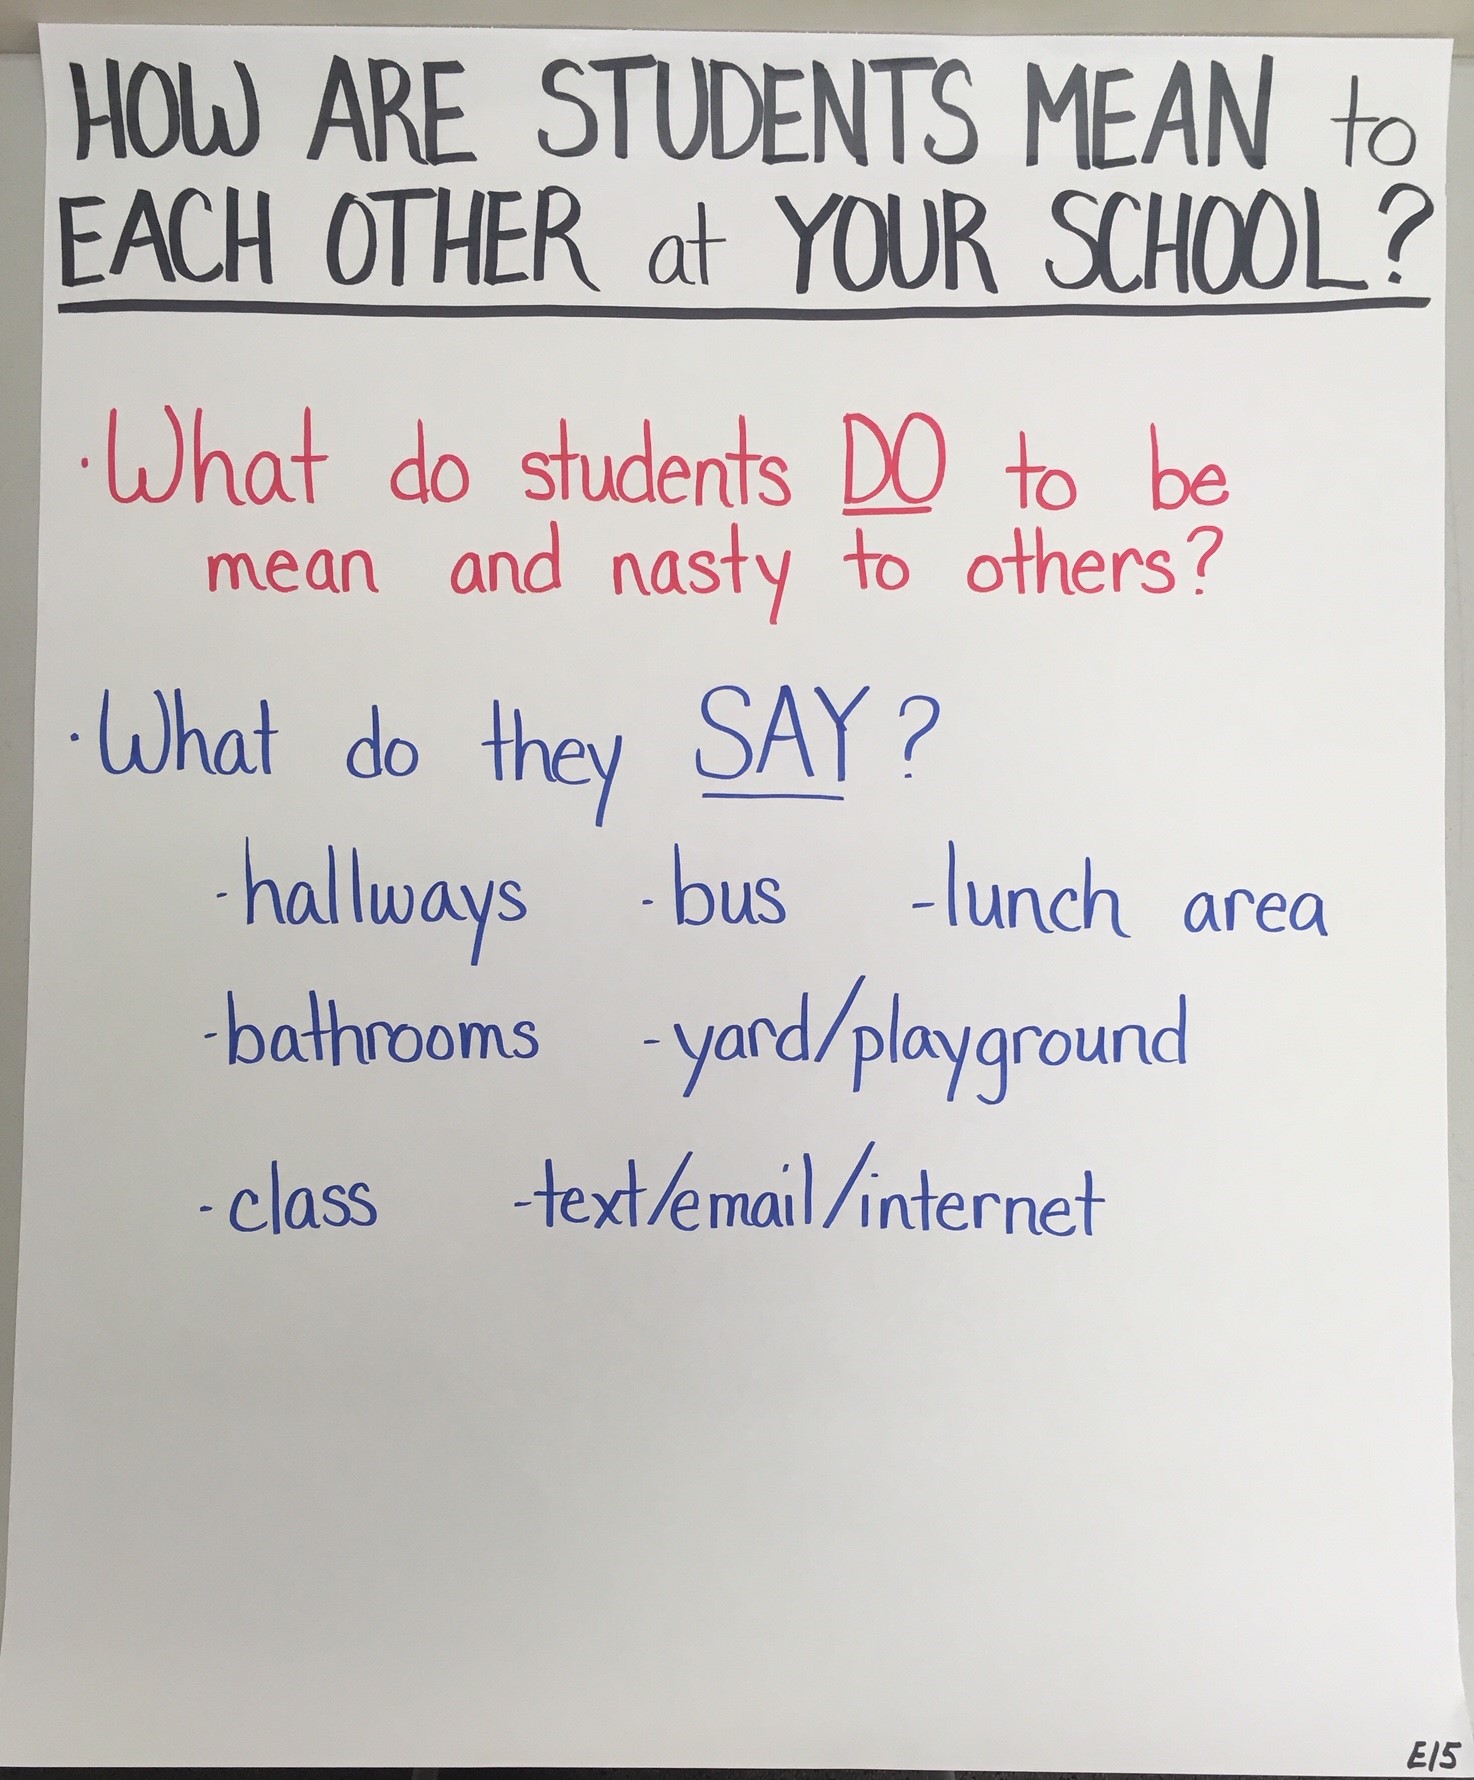 HOW ARE STUDENTS MEAN to
EACH OTHER at YOUR SCHOOL?
·What do students DO to be
mean and nasty to others?
·What do they SAY?
-hallways -bus -lunch area
-bathrooms -yard/playground
-class -text/email/internet
E15